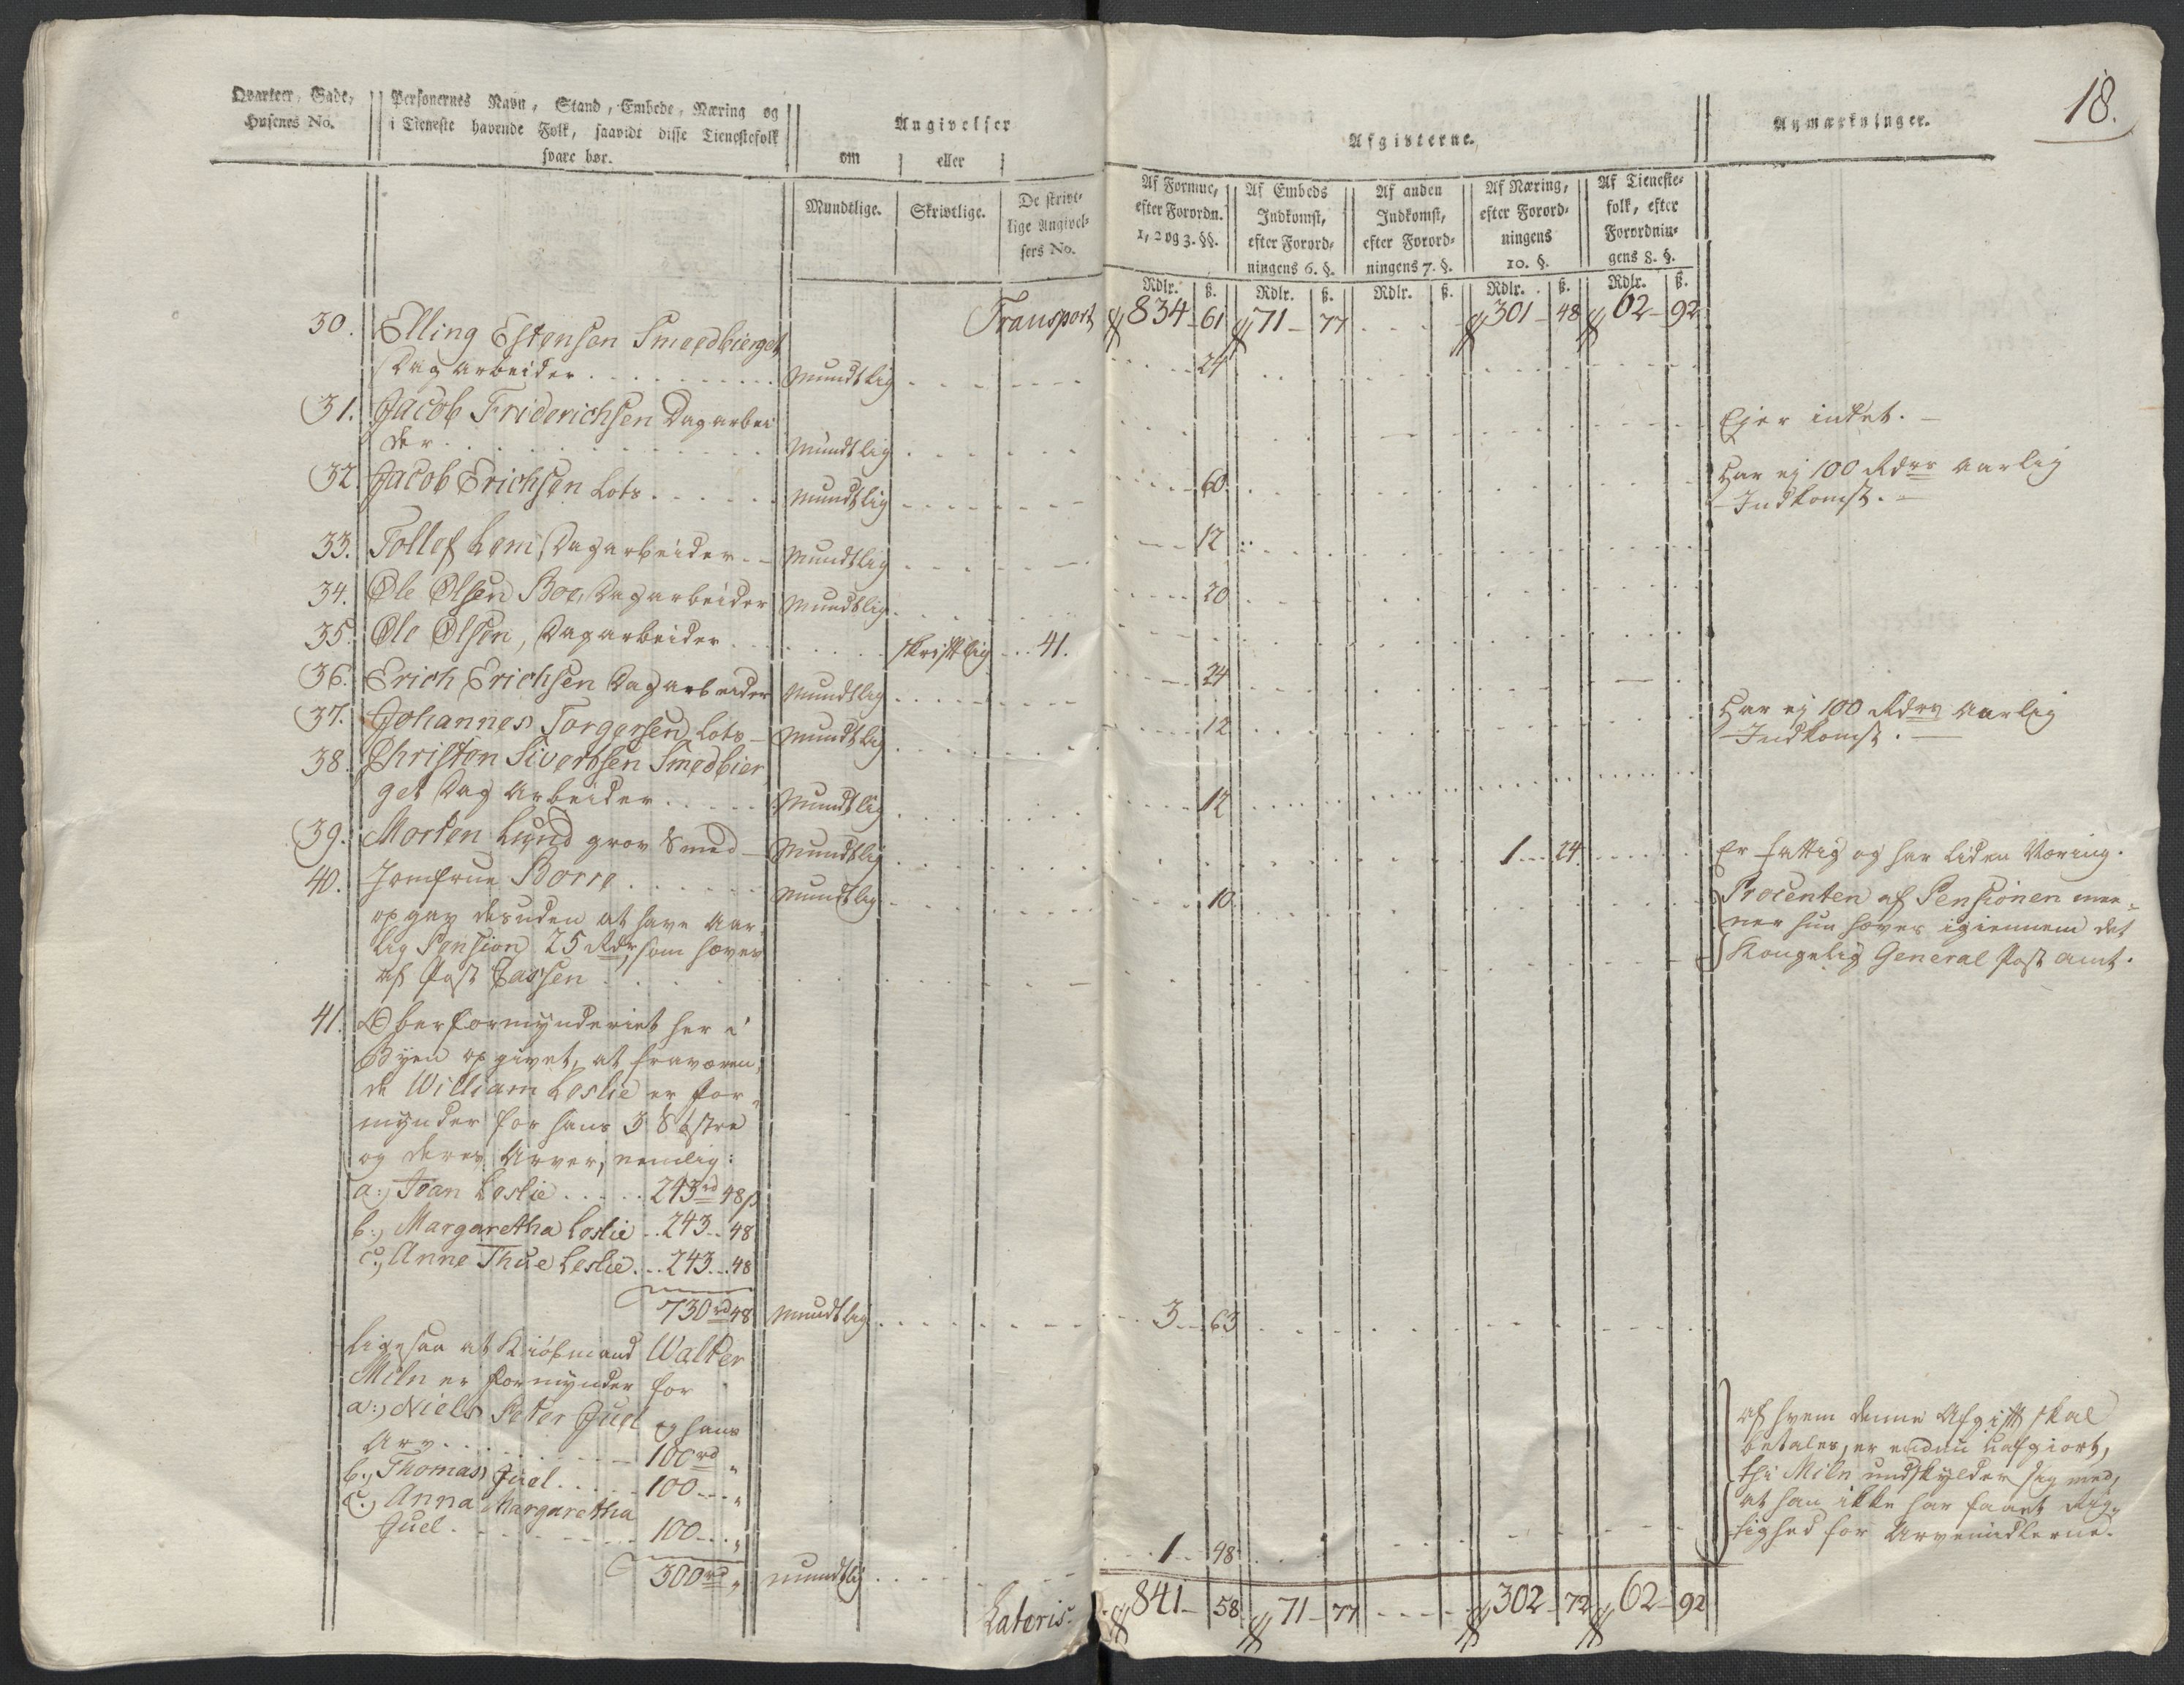 18.
Qvarteer, Gade, Husenes No.
Personernes Navn, Stand, Embede, Næring og
i Tieneste havende Folk, saavidt disse Tienestefolk
svare bør.
Angivelser
om eller
Mundtlige. Skrivtlige. De skrivt-
lige Angivel-
sers No.
Afgivterne.
Af Formue,
efter Forordn.
1, 2 og 3. §§.
Af Embeds
Indkomst,
efter Forord-
ningens 6. §.
Af anden
Indkomst,
efter Forord-
ningens 7. §.
Af Næring,
efter Forord-
ningens
10. §.
Af Tieneste-
folk, efter
Forordnin-
gens 8. §.
Anmærkninger.
Rdlr. ß. Rdlr. ß. Rdlr. ß. Rdlr. ß. Rdlr. ß.
Transport 834 61 71 77 301 48 62 92
30. Elling Estensen Smedbierget
Dag Arbeider mundtlig 24
31. Jacob Friderichsen Dagarbei
der mundtlig Ejer intet.
32 Jacob Erichsen Lots mundtlig 60 Har ej 100 Rdrs Aarlig
Indkomst.
33. Tollef Lem Dagarbeider mundtlig 12
34. Ole Olsen Boe, Dagarbeider mundtlig 20
35. Ole Olsen, Dagarbeider skriftlig 41.
36. Erich Erichsen Dagarbeider mundtlig 24
37. Johannes Torgersen Lots mundtlig 12 Har ej 100 Rdrs Aarlig
Indkomst.
38. Christen Sivertsen Smedbier
get Dag Arbeider mundtlig 12
39. Morten Lund grov Smed mundtlig 1 24 Er fattig og har liden Næring.
40. Jomfrue Borre mundtlig 10
opgav desuden at have Aar
lig Pension 25 Rdr, som hæves
af Post Cassen
Procenten af Pensionen mee-
ner hun hæves igiennem det
Kongelig General Post Amt.
41. Oberformynderiet her i
Byen opgivet, at fraværen,
de William Leslie er for-
mynder for hans 3 Søstre
og deres Arver, nemlig:
a:, Jean Leslie 243 rd 48 ß
b:, Margaretha Leslie 243 48
c:, Anne Thue Leslie 243 48
730 rd 48 mundtlig 3 63
ligesaa at Kiøbmand Walter
Miln er formynder for
a:, Niels Peter Juel og hans
Arv 100 rd „
b:, Thomas Juel 100 „
c:, Anna Margaretha
Juel 100 „
300 rd „ mundtlig 1 48
af hvem denne Afgift skal
betales, er endnu uafgiort,
thi Miln undskylder sig med,
at han ikke har faaet Rig-
tighed for Arvemidlerne.
Lateris 841 58 71 77 302 72 62 92